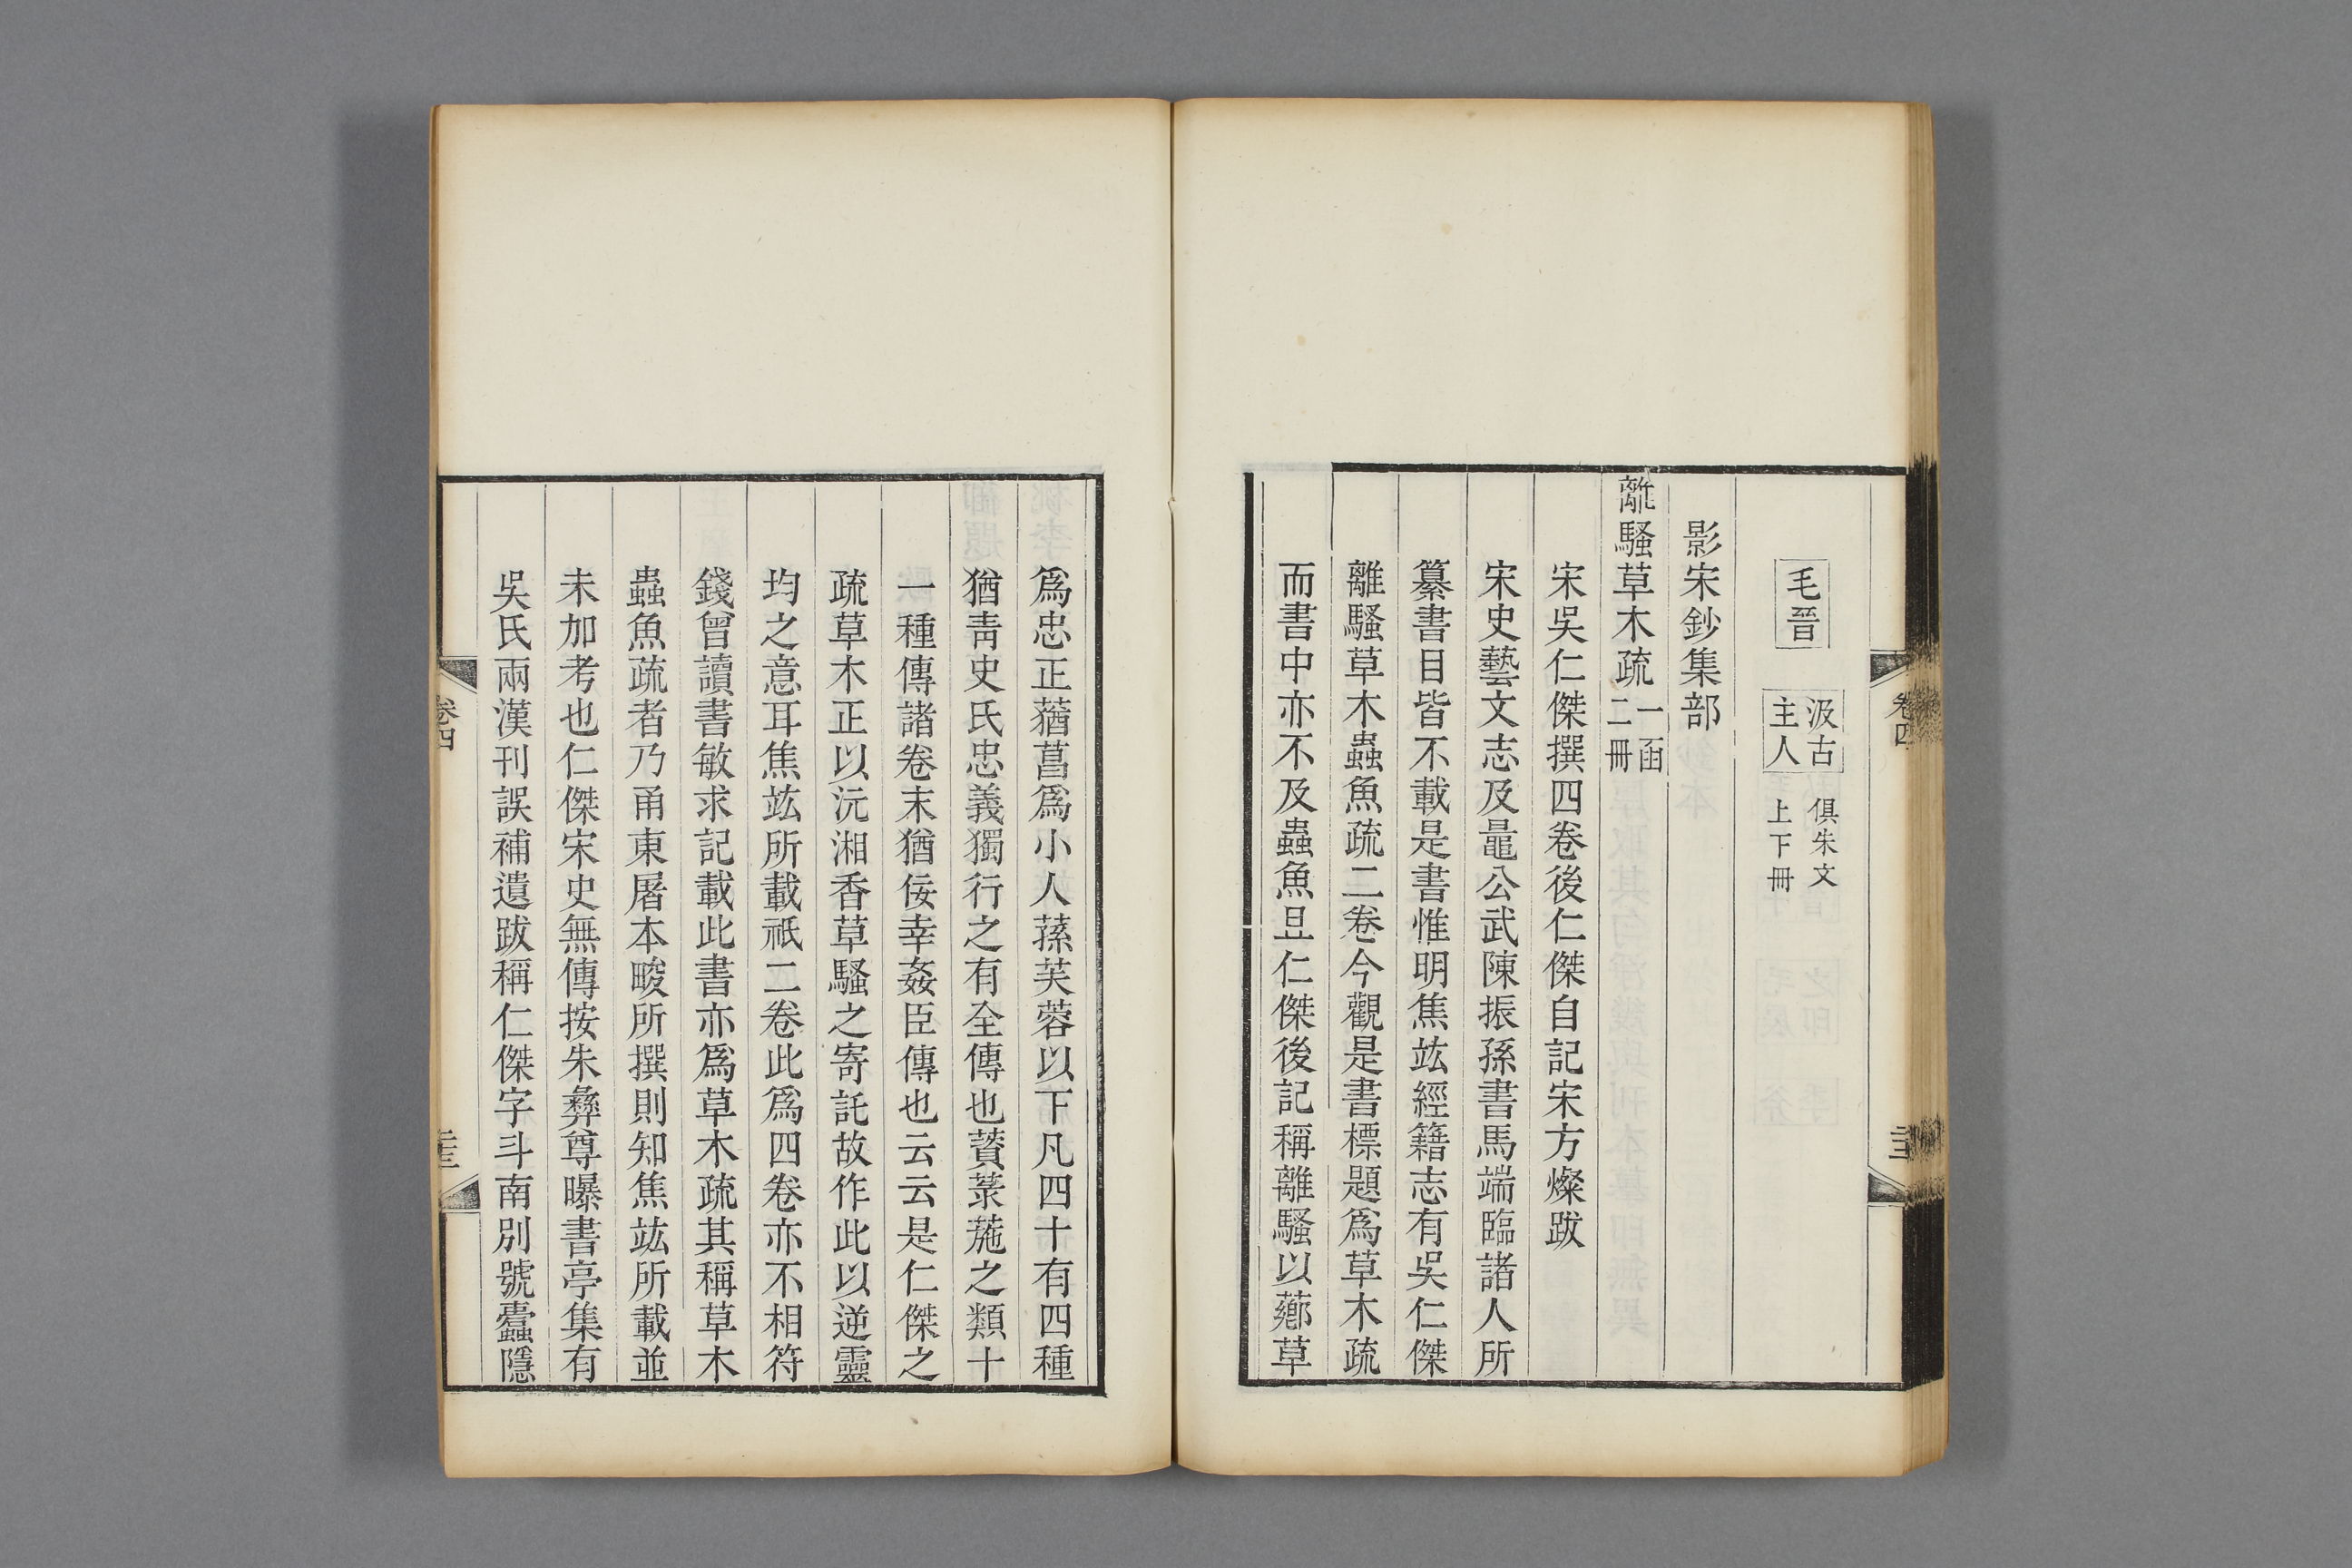 毛晉 汲古主人 俱朱文上下冊
影宋鈔集部
離騷草木疏一函二冊
宋吳仁傑撰四卷後仁傑自記宋方燦跋
宋史藝文志及鼂公武陳振孫書馬端臨諸人所
纂書目皆不載是書惟明焦竑經籍志有吳仁傑
離騷草木蟲魚疏二卷今觀是書標題爲草木疏
而書中亦不及蟲魚且仁傑後記稱離騷以薌草
爲忠正蕕菖爲小人蓀芙蓉以下凡四十有四種
猶靑史氏忠義獨行之有全傳也薋菉葹之類十
一種傳諸卷末猶佞幸姦臣傳也云云是仁傑之
疏草木正以沅湘香草騷之寄託故作此以逆靈
均之意耳焦竑所載祇二卷此爲四卷亦不相符
錢曾讀書敏求記載此書亦爲草木疏其稱草木
蟲魚疏者乃甬東屠本畯所撰則知焦竑所載並
未加考也仁傑宋史無傳按朱彝尊曝書亭集有
吳氏兩漢刊誤補遺跋稱仁傑字斗南別號蠹隱
卷四